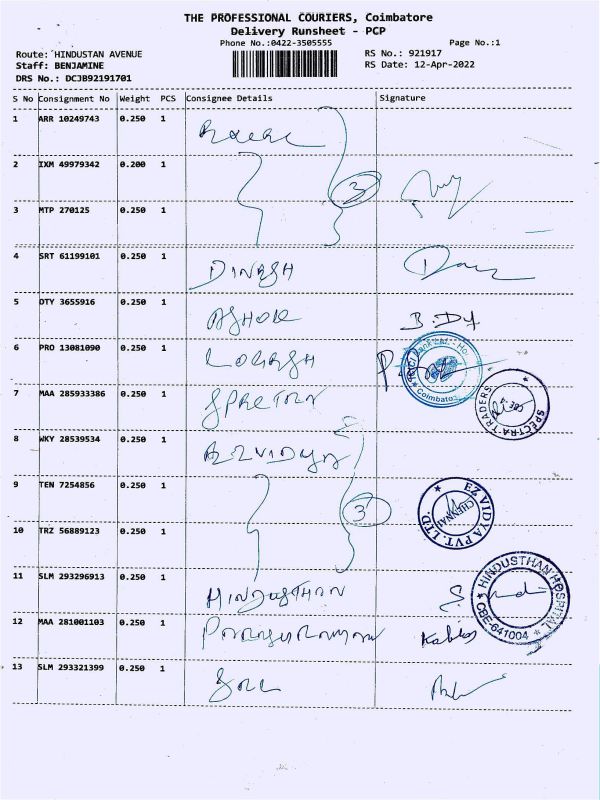 THE PROFESSIONAL COURIERS, Coimbatore
Delivery Runsheet - PCP
Phone No.:0422-3505555
Page No.:1
Route: HINDUSTAN AVENUE
RS No.: 921917
Staff: BENJAMINE
RS Date: 12-Apr-2022
DRS No.: DCJB92191701
S No Consignment No Weight PCS Consignee Details Signature
1 ARR 10249743 0.250 1
2 IXM 49979342 0.200 1
3
3 MTP 270125 0.250 1
4 SRT 61199101 0.250 1 DINESH
5 DTY 3655916 0.250 1 ASHOK
6 PRO 13081090 0.250 1 LOGESH
Coimbatore
7 MAA 285933386 0.250 1
SPECTRA TRADERS
CBE-4
8 WKY 28539534 0.250 1 EZVIDYA
9 TEN 7254856 0.250 1
3
EZ VIDYA PVT. LTD.
CHENNAI
10 TRZ 56889123 0.250 1
11 SLM 293296913 0.250 1 HINDUSTHAN
HINDUSTHAN HOSPITAL
CBE-641004
12 MAA 281001103 0.250 1 Parasuraman
13 SLM 293321399 0.250 1